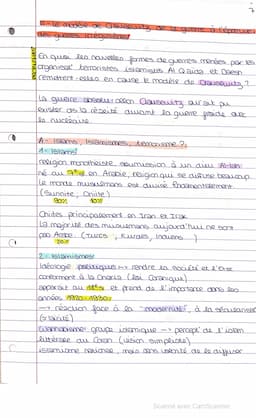 II - Le modèle de Clausewitz de la guerre à l'épreuve
des guerres irrégulières
En quoi les nouvelles formes de guerres menées par les
organisat° terroristes islamiques Al Qaida et Daesh
remettent-elles en cause le modèle de Clausewitz ?
La guerre absolue selon Clausewitz aurait pu
exister ds la réalité durant la guerre froide avec
le nucléaire
A - Islams, Islamismes, terrorisme ?
1 - Islams
religion monothéiste, soumission à un dieu
né au 7e s en Arabie, religion qui se diffuse beaucoup
Le monde musulmans est divisé fondamentalement
(Sunnite, Chiite)
90% 10%
Chiites principalement en Iran et Irak
La majorité des musulmans aujourd'hui ne sont
pas Arabe. (Turcs, Kurdes, Indiens...)
20%
2 - Islamismes
Idéologie politique → rendre la société et l'État
conforment à la Charia (loi Coranique)
apparait au et prend de l'importance dans les
années 1920-1930
→ réaction face à la "modernité", à la sécularisat°
(≠ laïcité)
Wahhabisme: groupe islamique → percept° de l'islam
littérale du Coran (vision simpliste)
islamisme radicale, mais sans volonté de se diffuser
Scanné avec CamScanner